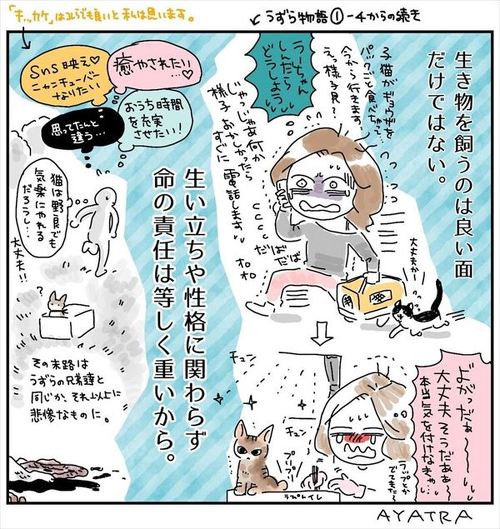 「キッカケ」はコレらでも良いと私は思います。
うずら物語①-4からの続き
生き物を飼うのは良い面
だけではない。
子猫がギョウザを
パックごと食べちゃって…
今から行きます
えっ様子見?
うーちゃん
しんだら
どうしよう
じゃっじゃあ何か
様子おかしかったら
すぐに
電話します
だばだば
大丈夫かー
生い立ちや性格に関わらず
命の責任は等しく重いから。
癒やされたい…
sns映え
ニャンチューバー
なりたい
おうち時間
を充実
させたい!
思ってたんと
違う…
猫は野良でも
気楽にやれる
だろうし…
大丈夫!!
?
その末路は
うずらの兄弟達と
同じか、それ以上に
悲惨なものに。
よがっだぁ〜
大丈夫そうだぁぁ〜
本当気を付けなきゃ…
ラップとか
でてきた
チュン
チュン
プリプリ
ラブトイレ
AYATRA